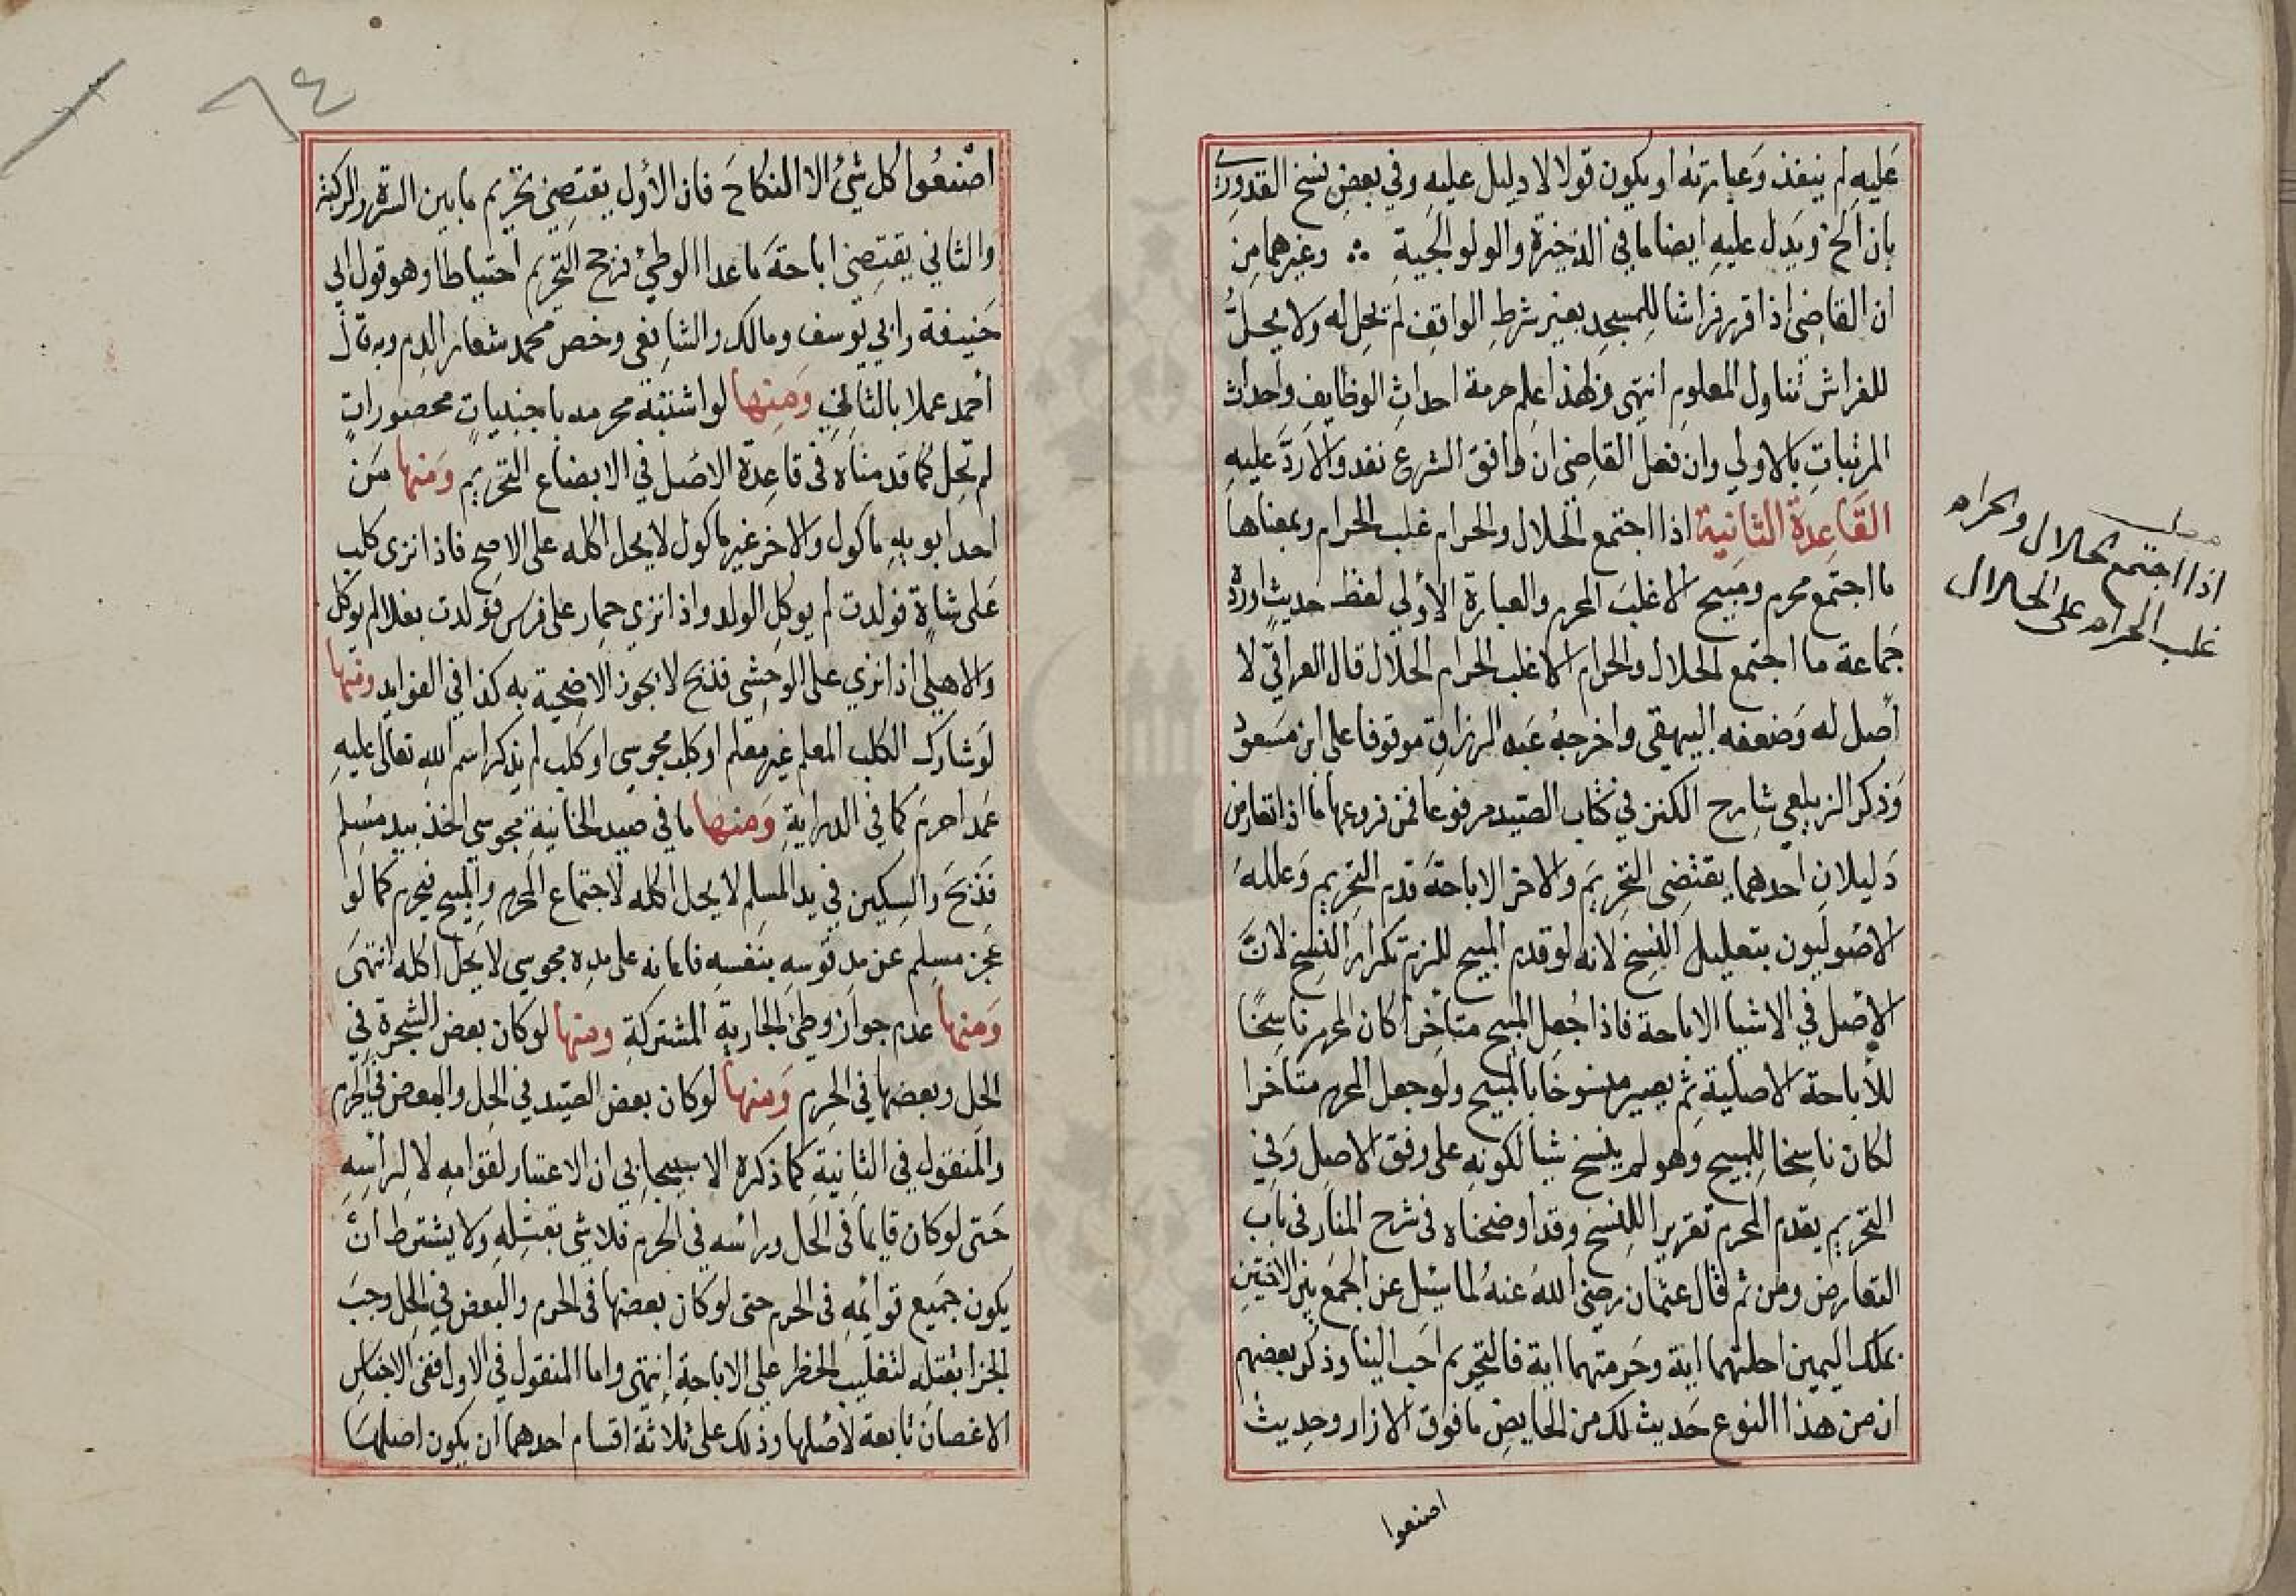 عليه لم ينفذ وعبارته او يكون قولا لا دليل عليه وفي بعض نسخ القدوري
بان الخ ويدل عليه ايضا ما في الذخيرة والولوالجية ∴ وغيرهما من
ان القاضي اذا قرر فراشا للمسجد بغير شرط الواقف لم يحل له ولا يحل
للفراش تناول المعلوم انتهى فبهذا علم حرمة احداث الوظايف واحداث
المرتبات بالاولي وان فعل القاضي ان وافق الشرع نفد والا رد عليه
القاعدة الثانية اذا اجتمع الحلال والحرام غلب الحرام وبمعناها
ما اجتمع محرم ومبيح الا غلب المحرم والعبارة الأولي لفظ حديث اورده
جماعة ما اجتمع الحلال والحرام الا غلب الحرام الحلال قال العراقي لا
أصل له وضعفه البيهقي واخرجه عبد الرزاق موقوفا على ابن مسعود
وذكر الزيلعي شارح الكنز في كتاب الصيد مرفوعا فمن فروعها ما اذا تعارض
دليلان احدهما يقتضى التحريم والاخر الاباحة قدم التحريم وعلله
الاصوليون بتعليل النسخ لانه لو قدم المبيح للزم تكرار النسخ لان
الاصل في الاشيا الاباحة فاذا جعل المبيح متأخرا كان المحرم ناسخا
للأباحة الاصلية ثم يصير منسوخا بالمبيح ولو جعل المحرم متاخرا
لكان ناسخا للمبيح وهو لم ينسخ شيا لكونه على وفق الاصل وفي
التحريم يقدم المحرم تقريرا للنسخ وقد اوضحناه في شرح المنار في باب
التعارض ومن ثم قال عثمان رضي الله عنه لما سئل عن الجمع بين الاختين
بملك اليمين احلتهما اية وحرمتهما اية فالتحريم احب الينا وذكر بعضهم
ان من هذا النوع حديث لك من الحايض ما فوق الازار وحديث
اصنعوا
مطلب
اذا اجتمع الحلال والحرام
غلب الحرام على الحلال
٦٤
اصنعوا كل شئ الا النكاح فان الأول يقتضي تحريم ما بين السترة والركبة
والثاني يقتضي اباحة ما عدا الوطئ فرجح التحريم احتياطا وهو قول ابي
حنيفة وابي يوسف ومالك والشافعي وخص محمد شعار الدم وبه قال
أحمد عملا بالثاني ومنها لو اشتبه محرمه باجنبيات محصورات
لم تحل كما قدمناه في قاعدة الاصل في الابضاع التحريم ومنها من
احد ابويه ماكول والاخر غير ماكول لا يحل اكله على الاصح فاذا نزى كلب
على شاة فولدت لم يوكل الولد واذا نزى حمار على فرس فولدت بغلا لم يوكل
والاهلي اذا نزي على الوحشي فنتج لا تجوز الاضحية به كذا في الفوايد ومنها
لو شارك الكلب المعلم غير معلم او كلب مجوسي او كلب لم يذكر اسم الله تعالى عليه
عمدا حرم كما في الهداية ومنها ما في صيد الخانية مجوسي اخذ بيد مسلم
فذبح والسكين في يد المسلم لا يحل اكله لاجتماع المحرم والمبيح فيحرم كما لو
عجز مسلم عن مد قوسه بنفسه فاعانه على مده مجوسي لا يحل اكله انتهى
ومنها عدم جواز وطئ الجارية المشتركة ومنها لو كان بعض الشجرة في
الحل وبعضها في الحرم ومنها لو كان بعض الصيد في الحل والبعض في الحرم
والمنقول في الثانية كما ذكره الاسبيجابي ان الاعتبار لقوامه لا لرأسه
حتى لو كان قايما في الحل ورأسه في الحرم فلا شئ بقتله ولا يشترط أن
يكون جميع قوائمه في الحرم حتى لو كان بعضها في الحرم والبعض في الحل وجب
الجزا بقتله لتغليب الحظر على الاباحة انتهى واما المنقول في الاول ففي الاجناس
الاغصان تابعة لأصلها وذلك على ثلاثة اقسام احدهما ان يكون اصلها